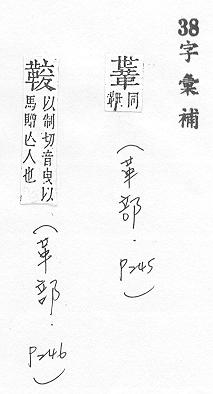 38字彙補
同
(革部.
P245)
以制切音曳以
馬贈亾人也
(革部.
P246)